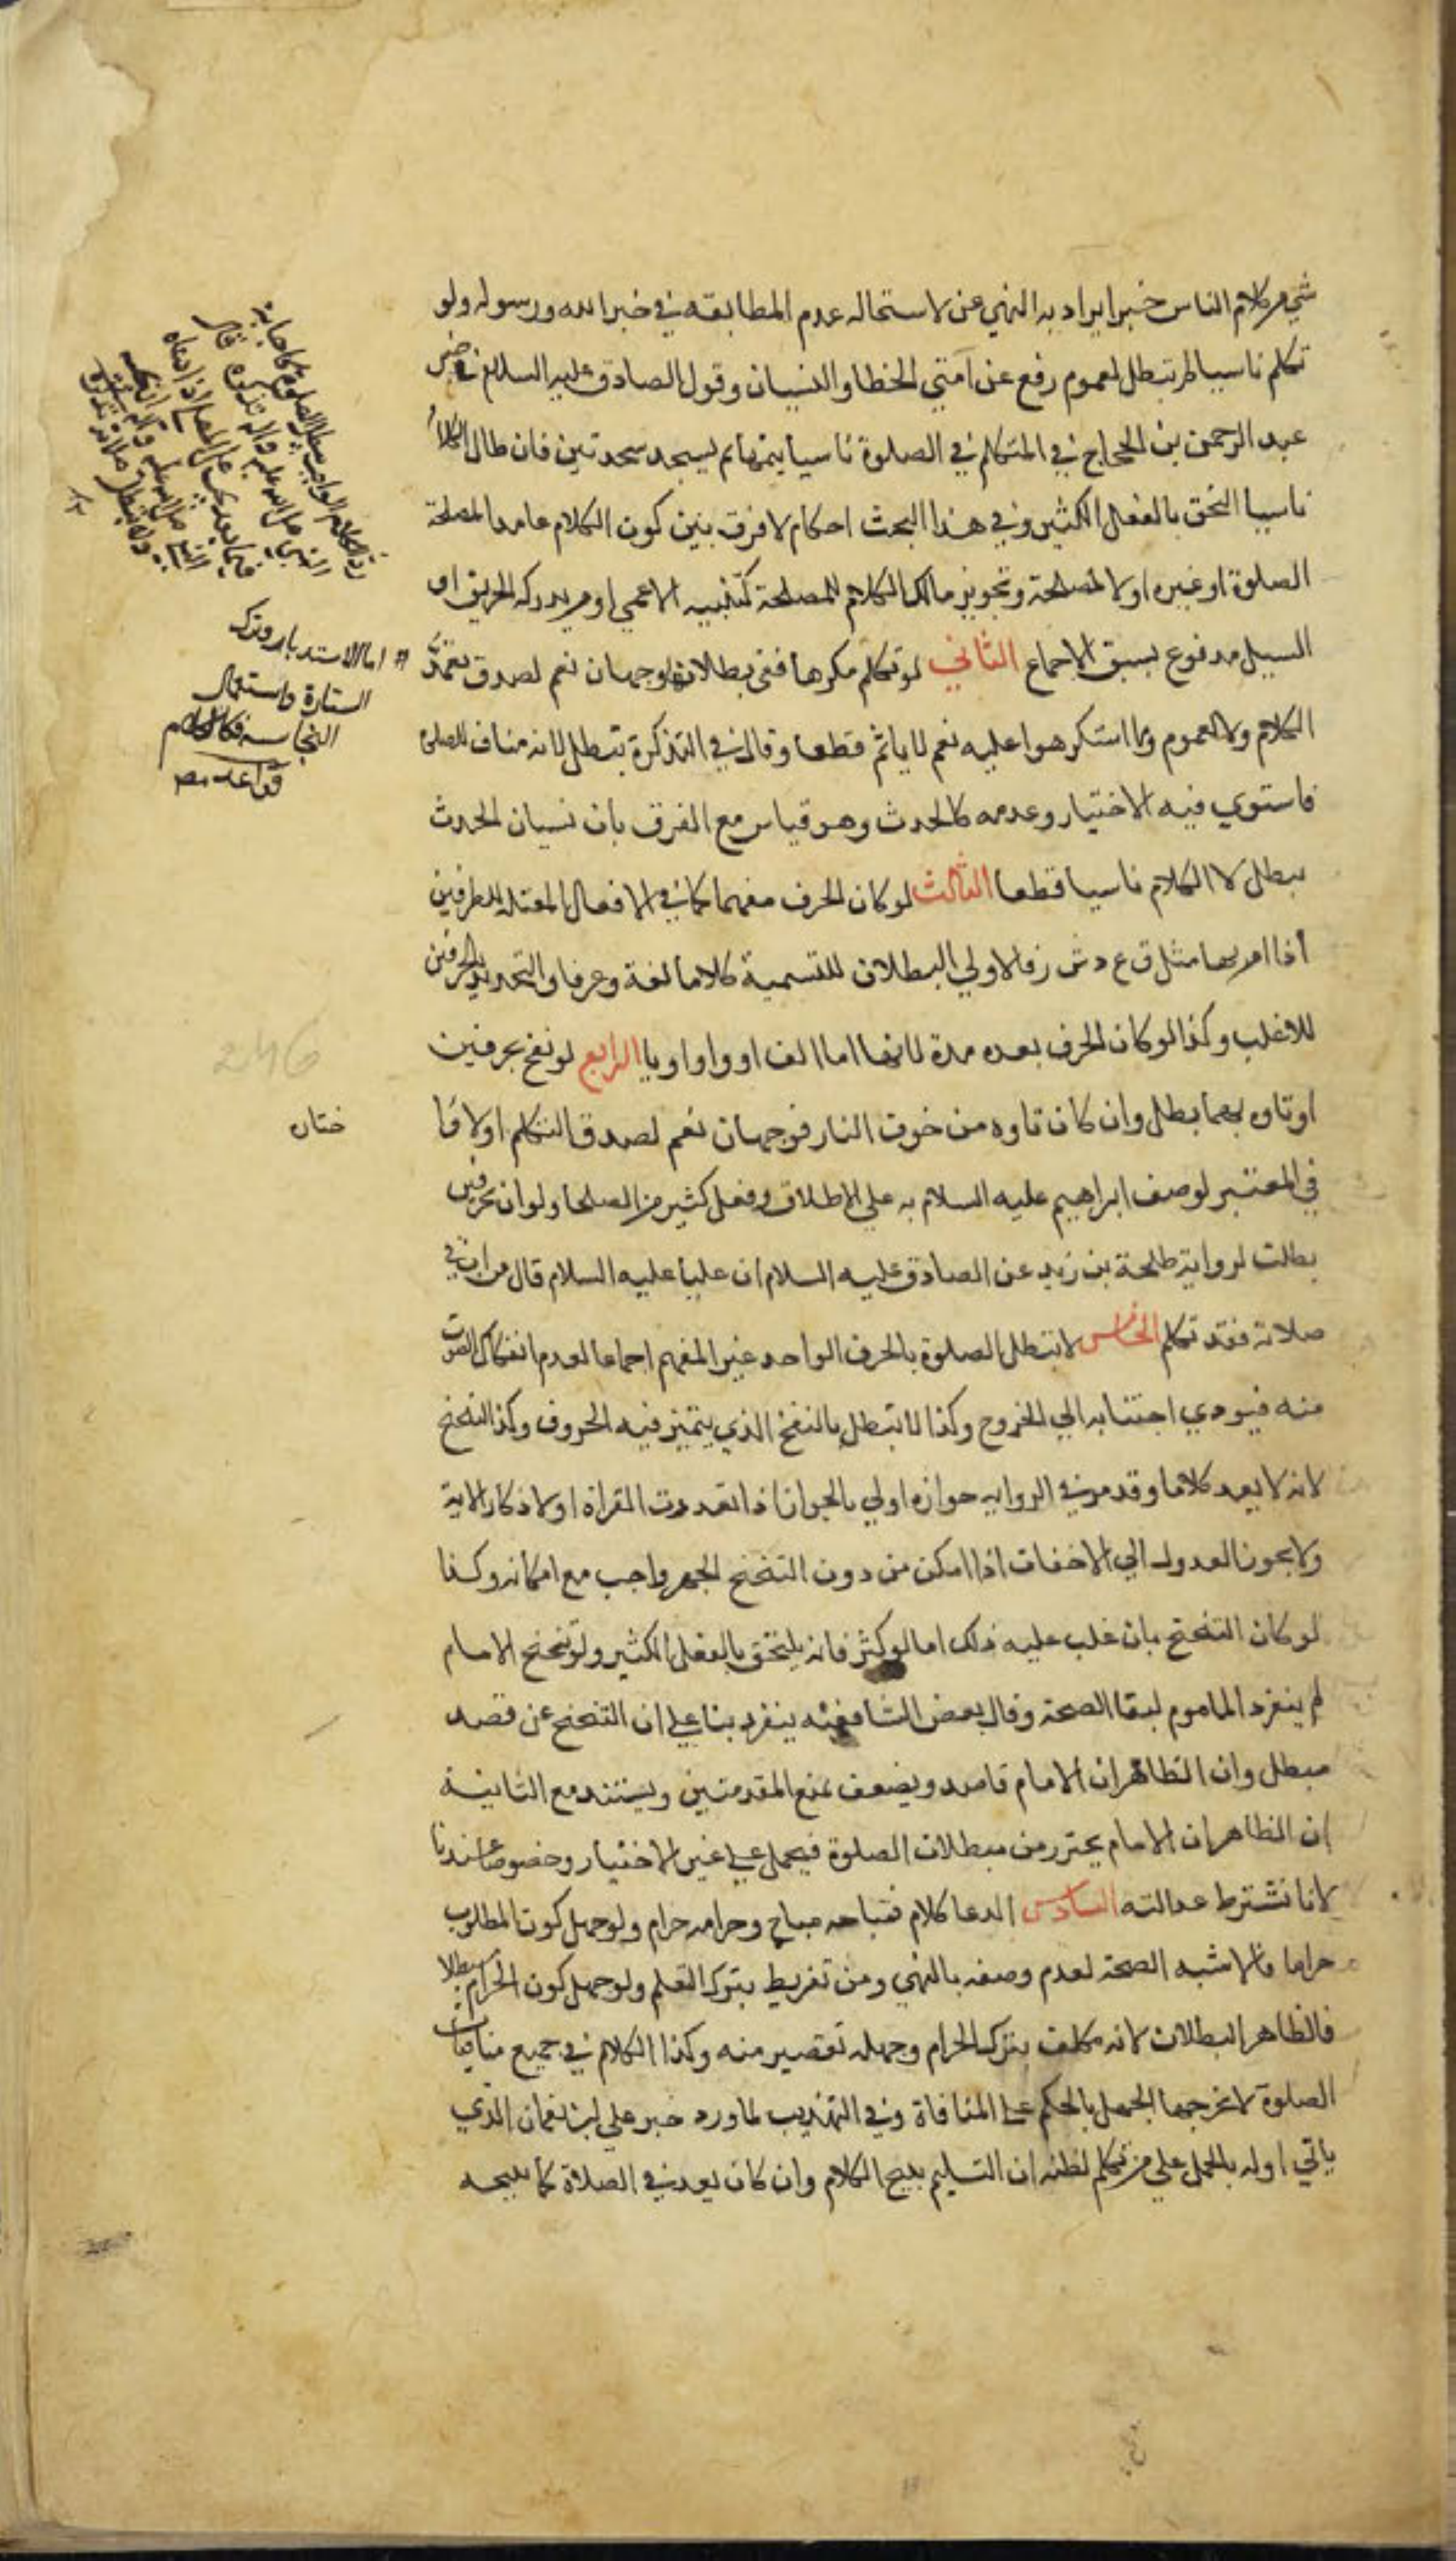 شي من كلام الناس خبرا يراد به النهي عن لاستحاله عدم المطابقه في خبر الله ورسوله ولو
تكلم ناسيا لم تبطل لعموم رفع عن امتي الخطا والنسيان وقول الصادق عليه السلام في خبر
عبد الرحمن بن الحجاج في المتكلم في الصلوة ناسيا يتمها ثم يسجد سجدتين فان طال الكلام
ناسيا التحق بالفعل الكثير وفي هذا البحث احكام لا فرق بين كون الكلام عامدا لمصلحة
الصلوة او غيره او لا لمصلحة وتجويز مالك الكلام لمصلحة كتنبيه الاعمي او من يدركه الحريق او
السيل مدفوع بسبق الاجماع الثاني لو تكلم مكرها ففي بطلانها وجهان نعم لصدق تعمد
الكلام ولا لعموم وما استكرهوا عليه نعم لا ياثم قطعا وقال في التذكرة تبطل لانه مناف للصلوة
فاستوي فيه الاختيار وعدمه كالحدث وهو قياس مع الفرق بان نسيان الحدث
يبطل لا الكلام ناسيا قطعا الثالث لو كان الحرف مفهما كما في الافعال المعتلة الطرفين
اذا امر بها مثل ق ع د ش ر فالاولي البطلان للتسمية كلاما لغة وعرفا والتحديد بالحرفين
للاغلب وكذا لو كان الحرف بعده مدة لانها اما الف او واو او يا الرابع لو نفخ بحرفين
او تاوه بهما بطل وان كان تاوه من خوف النار فوجهان نعم لصدق التكلم اولا قا
في المعتبر لوصف ابراهيم عليه السلام به علي الاطلاق وفعل كثير من الصلحا ولو ان بحرفين
بطلت لرواية طلحة بن زيد عن الصادق عليه السلام ان عليا عليه السلام قال من ان في
صلاته فقد تكلم الخامس لا تبطل الصلوة بالحرف الواحد غير المفهم اجماعا لعدم انفكاك الصوت
منه فيودي اجتنابه الي الخروج وكذا لا تبطل بالنفخ الذي يتميز فيه الحروف وكذا التنحنح
لانه لا يعد كلاما وقد مر في الروايه جوازه اولي بالجواز اذا تعددت القراة او لاذكار الابه
ولا يجوز العدول الي الاخفات اذا امكن من دون التنحنح الجهر واجب مع امكانه وكذا
لو كان التنحنح بان غلب عليه ذلك اما لو كثر فانه يلتحق بالفعل الكثير ولو تنحنح الامام
لم ينفرد الماموم لبقا الصحة وقال بعض الشافعيه ينفرد بنا علي ان التنحنح عن قصد
مبطل وان الظاهر ان الامام قاصد ويضعف بمنع المقدمتين ويستند مع الثانية
ان الظاهر ان الامام يحترز من مبطلات الصلوة فيحمل علي غير الاختيار وخصوصا عندنا
لانا نشترط عدالته السادس الدعا كلام فمباحه مباح وحرامه حرام ولو جهل كون المطلوب
حراما فالاشبه الصحة لعدم وصفه بالنهي ومن تفريط بترك التعلم ولو جهل كون الحرام مبطلا
فالظاهر البطلان لانه مكلف بترك الحرام وجهله تقصير منه وكذا الكلام في جميع منافيات
الصلوة لا يخرجها الجهل بالحكم عن المنافاة وفي التهذيب لما ورد خبر علي ابن نعمان الذي
ياتي اوله بالحمل علي من تكلم لظنه ان التسليم يبيح الكلام وان كان يعد في الصلاة كما يبيحه
اما الاستدبار وترك
الستارة واستعمال
النجاسة فكالكلام
قواعد مص
246
ختان